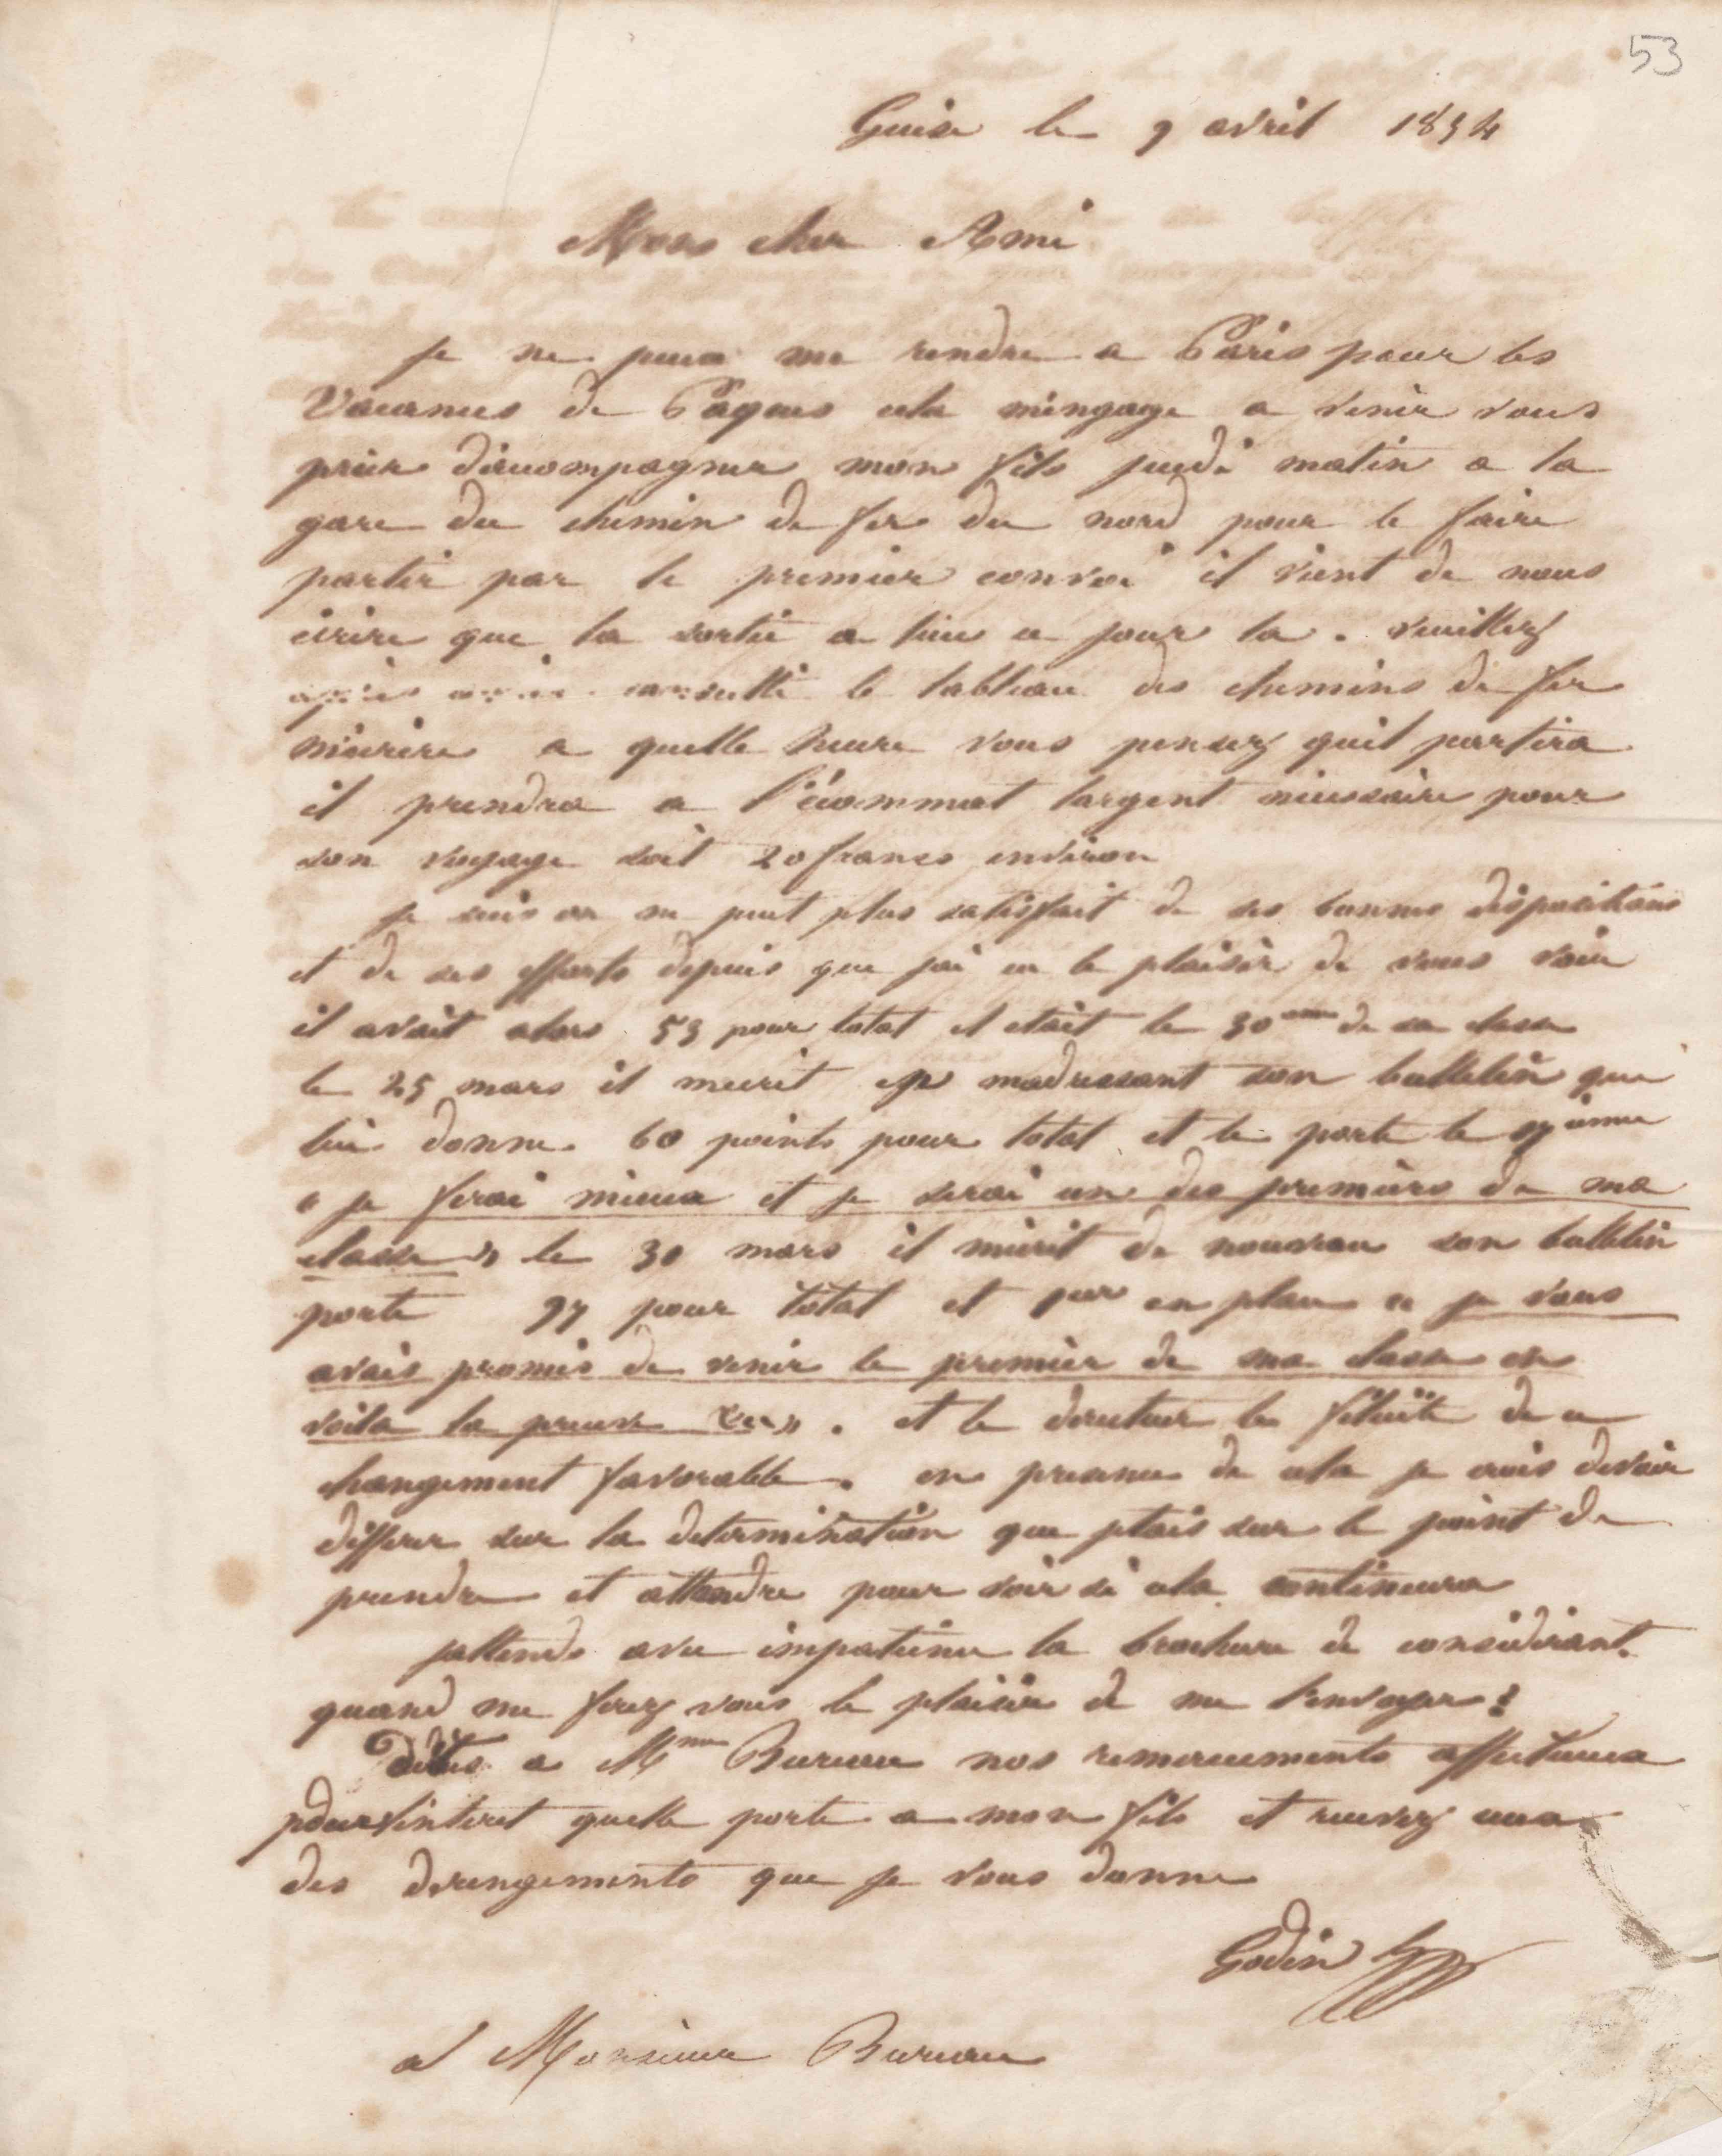 53
Guise le 9 avril 1854
Mon cher Ami
je ne peux me rendre a Paris pour les
vacances de Pâques cela m'engage a venir vous
prier d'accompagner mon fils jeudi matin a la
gare du chemin de fer du nord pour le faire
partir par le premier convoi il vient de nous
écrire que la sortie a lieu ce jour la . veuillez
après avoir consulté le tableau des chemins de fer
m'écrire a quelle heure vous pensez quil partira
il prendra a l'économat largent nécessaire pour
son voyage soit 20 francs environ
je suis on ne peut plus satisfait de ses bonnes dispositions
et de ses efforts depuis que jai eu le plaisir de vous voir
il avait alors 53 pour total et etait le 30eme de sa classe
le 25 mars il mecrit en madressant son bulletin qui
lui donne 60 points pour total et le porte le ieme
" je ferai mieux et je serai un des premiers de ma
classe » le 30 mars il mécrit de nouveau son bulletin
porte 97 pour total et 1er en place « je vous
avais promis de venir le premier de ma classe en
voila la preuve » . et le directeur le félicite de ce
changement favorable . en presence de cela je crois devoir
differer sur la determination que jetais sur le point de
prendre et attendre pour voir si cela continuera
jattends avec impatience la brochure de considerant.
quand me ferez vous le plaisir de me l'envoyer ?
Dites a Mme Bureau nos remerciements affectueux
pour linteret quelle porte a mon fils et recevez ceux
des derengements que je vous donne
Godin
a Monsieur Bureau